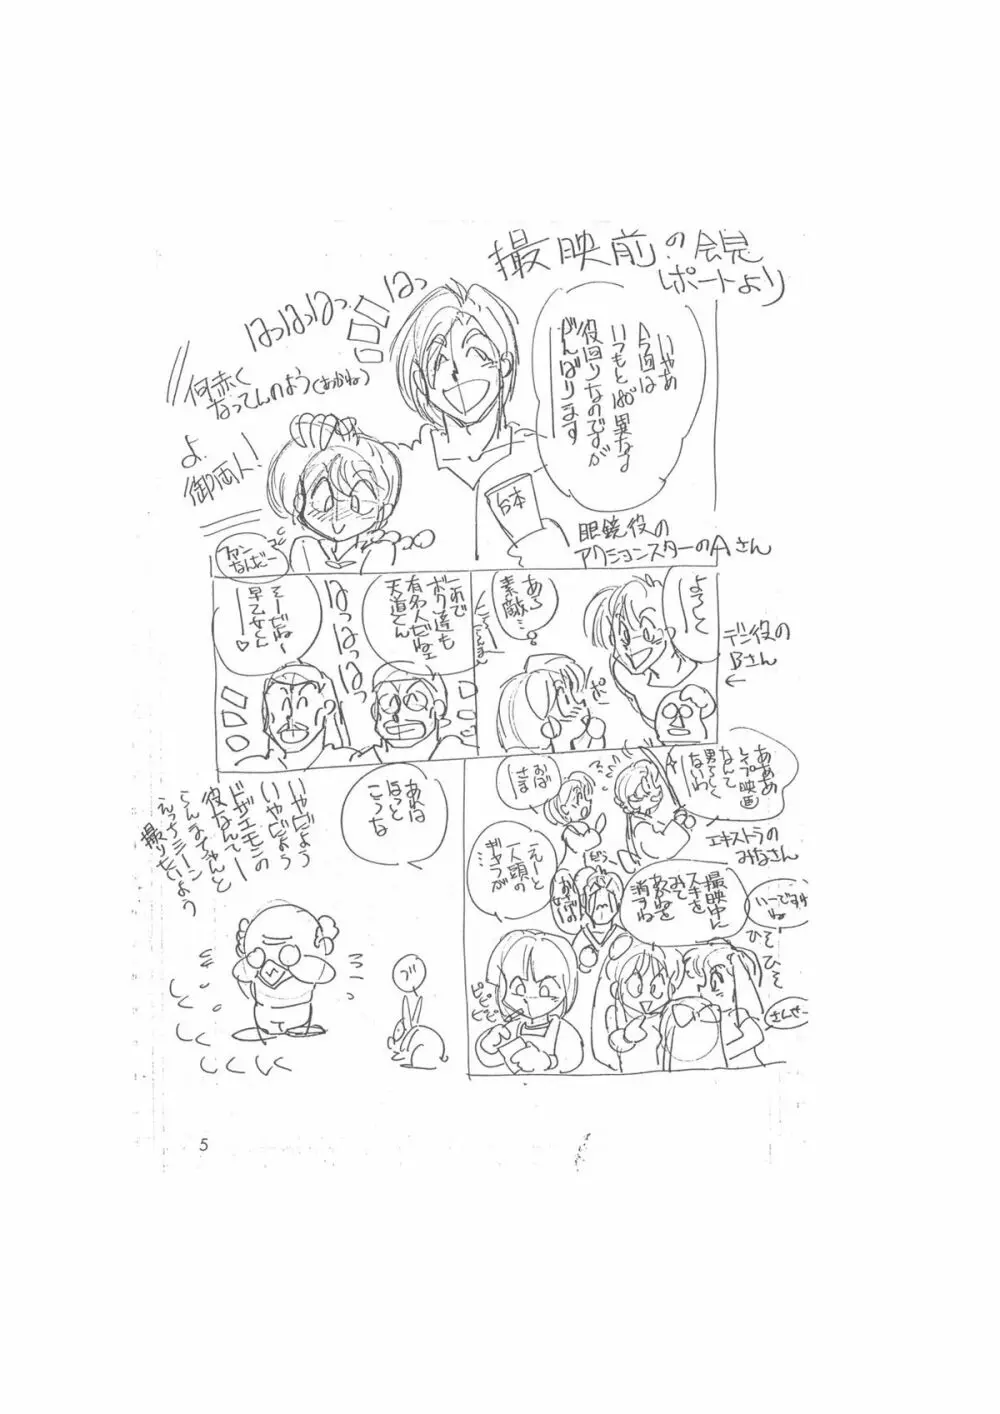 撮映前の会見
レポートより
いやあ
今回は
いつもと180°異なる
役回りなのですが
がんばります
はっはっはっ はっ
何赤く
なってんのよう(あかね)
よ
御両人!
台本
眼鏡役の
アクションスターのAさん
よろしく
デブ役の
Bさん
あら
素敵…
ポ
これで
ボク達も
有名人だねェ
天道くん
はっはっはっ
そーだねー
早乙女くん
ー♡
あああ
レイプ映画
なんて
男らしく
ないわ
おば
さま
エキストラの
みなさん
えーと
一人頭の
ギャラが
撮映中に
スキを
みて
あかねを
消すね
いーですわ
ね
ひそ
ひそ
さんせー
ピピピピ
あれは
ほっと
こうな
いやじゃよう
いやじゃよう
ドザエモンの
役なんてー
らんまちゃんと
えっちシーン
撮りたいよう
ブ
しくしく
しくしく
5